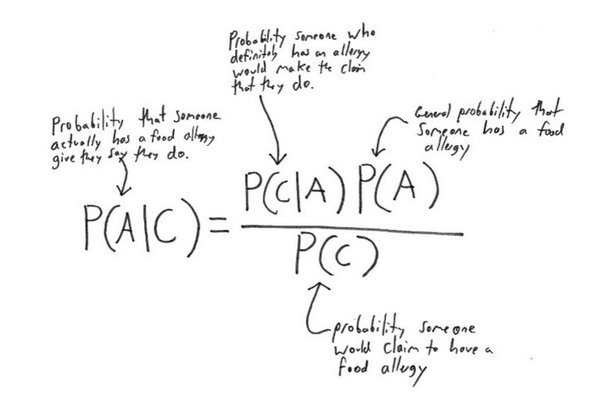 Probability someone who
definitely has an allergy
would make the claim
that they do.
Probability that someone
actually has a food allergy
give they say they do.
General probability that
someone has a food
allergy
P(A|C) = P(C|A) P(A)
P(C)
probability someone
would claim to have a
food allergy